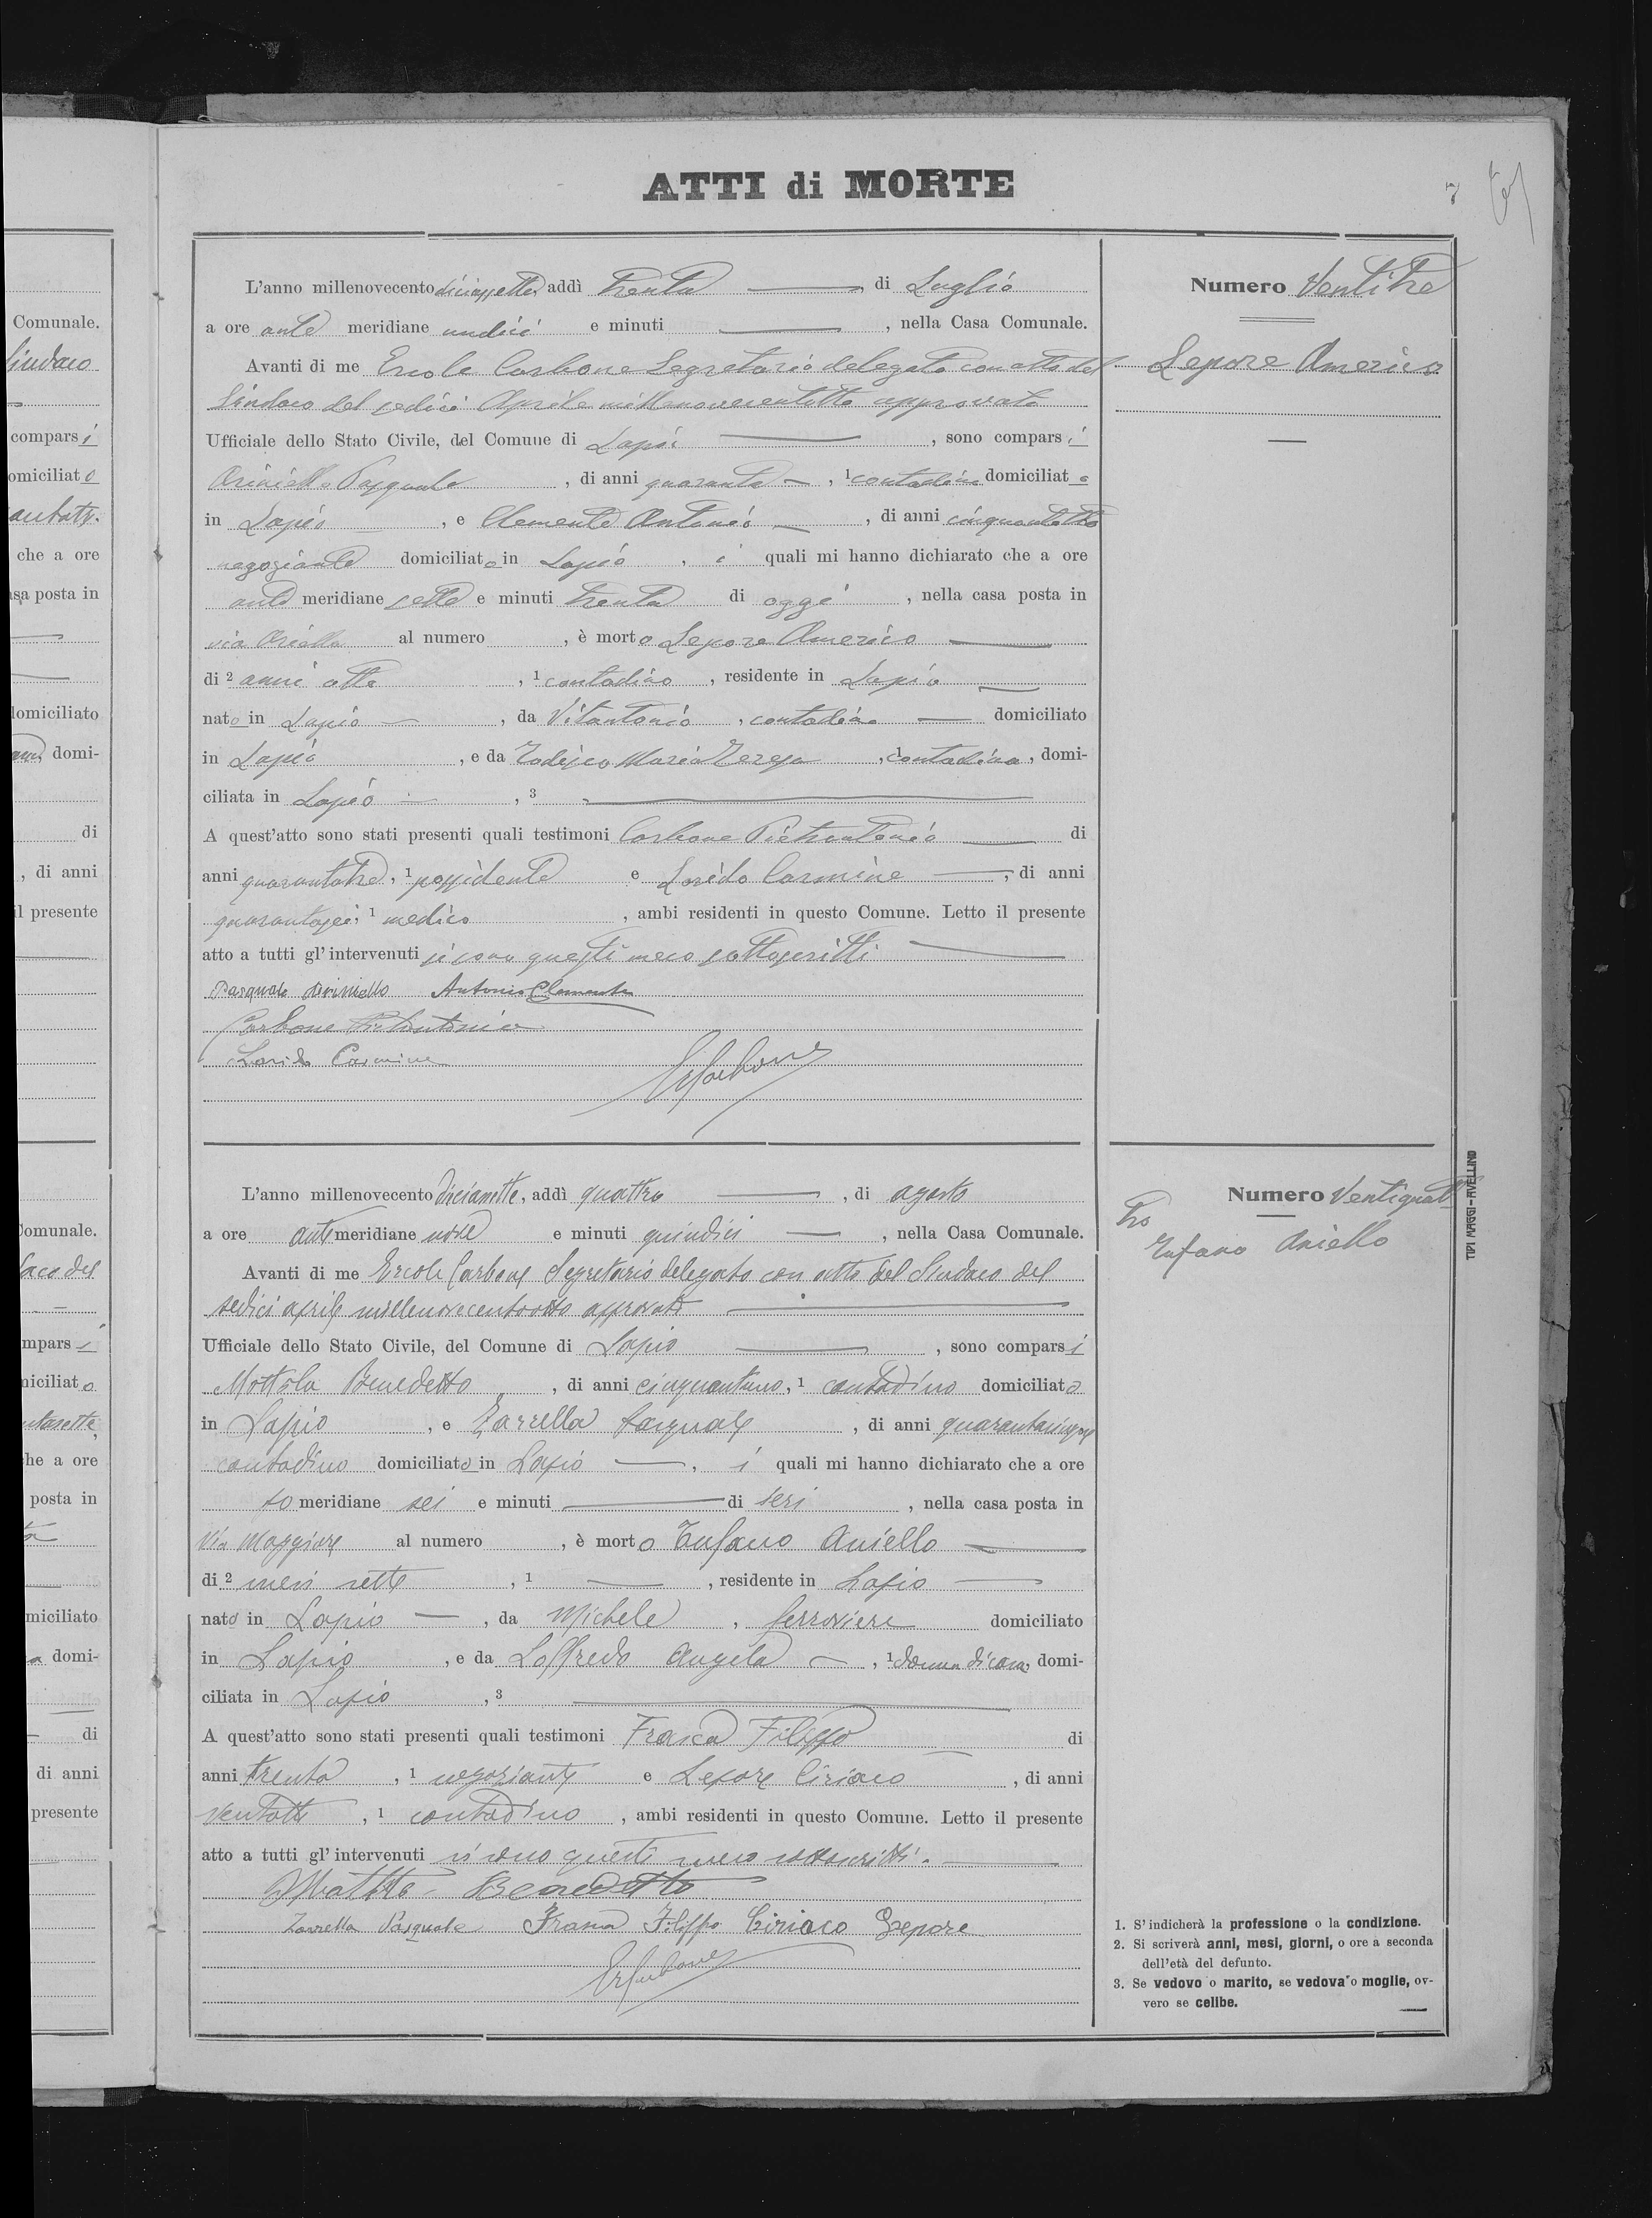 Comunale.
Sindaco
compars i
omiciliat o
che a ore
asa posta in
domiciliato
domi-
di
, di anni
il presente
Comunale.
daco del
mpars i
niciliat o
ntasette
he a ore
posta in
miciliato
a domi-
di
di anni
presente
ATTI di MORTE
7
L'anno millenovecento diciassette, addì trenta di Luglio
a ore ante meridiane undici e minuti , nella Casa Comunale.
Avanti di me Ercole Carbone Segretario delegato con atto del
Sindaco del sedici Aprile millenovecentotto approvato
Ufficiale dello Stato Civile, del Comune di Lapio , sono compars i
Oriniello Pasquale , di anni quaranta , 1 contadino domiciliat o
in Lapio , e Clemente Antonio , di anni cinquantotto
negoziante domiciliat o in Lapio , i quali mi hanno dichiarato che a ore
ante meridiane sette e minuti trenta di oggi , nella casa posta in
via al numero , è mort o Lepore Americo
di 2 anni otto , 1 contadino , residente in Lapio
nat o in Lapio , da Vitantonio , contadino domiciliato
in Lapio , e da Todisco Maria Teresa , 1 contadina , domi-
ciliata in Lapio , 3
A quest'atto sono stati presenti quali testimoni Carbone Pietrantonio di
anni quarantatre , 1 possidente e Lorido Carmine , di anni
quarantasei , 1 medico , ambi residenti in questo Comune. Letto il presente
atto a tutti gl'intervenuti si sono questi meco sottoscritti
Pasquale Oriniello Antonio Clemente
Carbone Pietrantonio
Lorido Carmine
ErCarbone
Numero Ventitre
Lepore Americo
L'anno millenovecento diciassette, addì quattro , di agosto
a ore ante meridiane nove e minuti quindici , nella Casa Comunale.
Avanti di me Ercole Carbone Segretario delegato con atto del Sindaco del
sedici aprile millenovecentootto approvato
Ufficiale dello Stato Civile, del Comune di Lapio , sono compars i
Mottola Benedetto , di anni cinquantuno , 1 contadino domiciliat o
in Lapio , e Zarrella Pasquale , di anni quarantacinque
contadino domiciliat o in Lapio , i quali mi hanno dichiarato che a ore
po meridiane sei e minuti di ieri , nella casa posta in
Via Maggiore al numero , è mort o Tufano Aniello
di 2 mesi sette , 1 , residente in Lapio
nat o in Lapio , da Michele , ferroviere domiciliato
in Lapio , e da Loffredo Angela , 1 donna di casa, domi-
ciliata in Lapio , 3
A quest'atto sono stati presenti quali testimoni Frasca Filippo di
anni trenta , 1 negoziante e Lepore Ciriaco , di anni
ventotto , 1 contadino , ambi residenti in questo Comune. Letto il presente
atto a tutti gl'intervenuti si sono questi meco sottoscritti.
Benedetto
Zarrella Pasquale Frasca Filippo Ciriaco Lepore
ErCarbone
Numero Ventiquat
tro
Tufano Aniello
TIPI MAGGI - AVELLINO
1. S'indicherà la professione o la condizione.
2. Si scriverà anni, mesi, giorni, o ore a seconda
dell'età del defunto.
3. Se vedovo o marito, se vedova o moglie, ov-
vero se celibe.